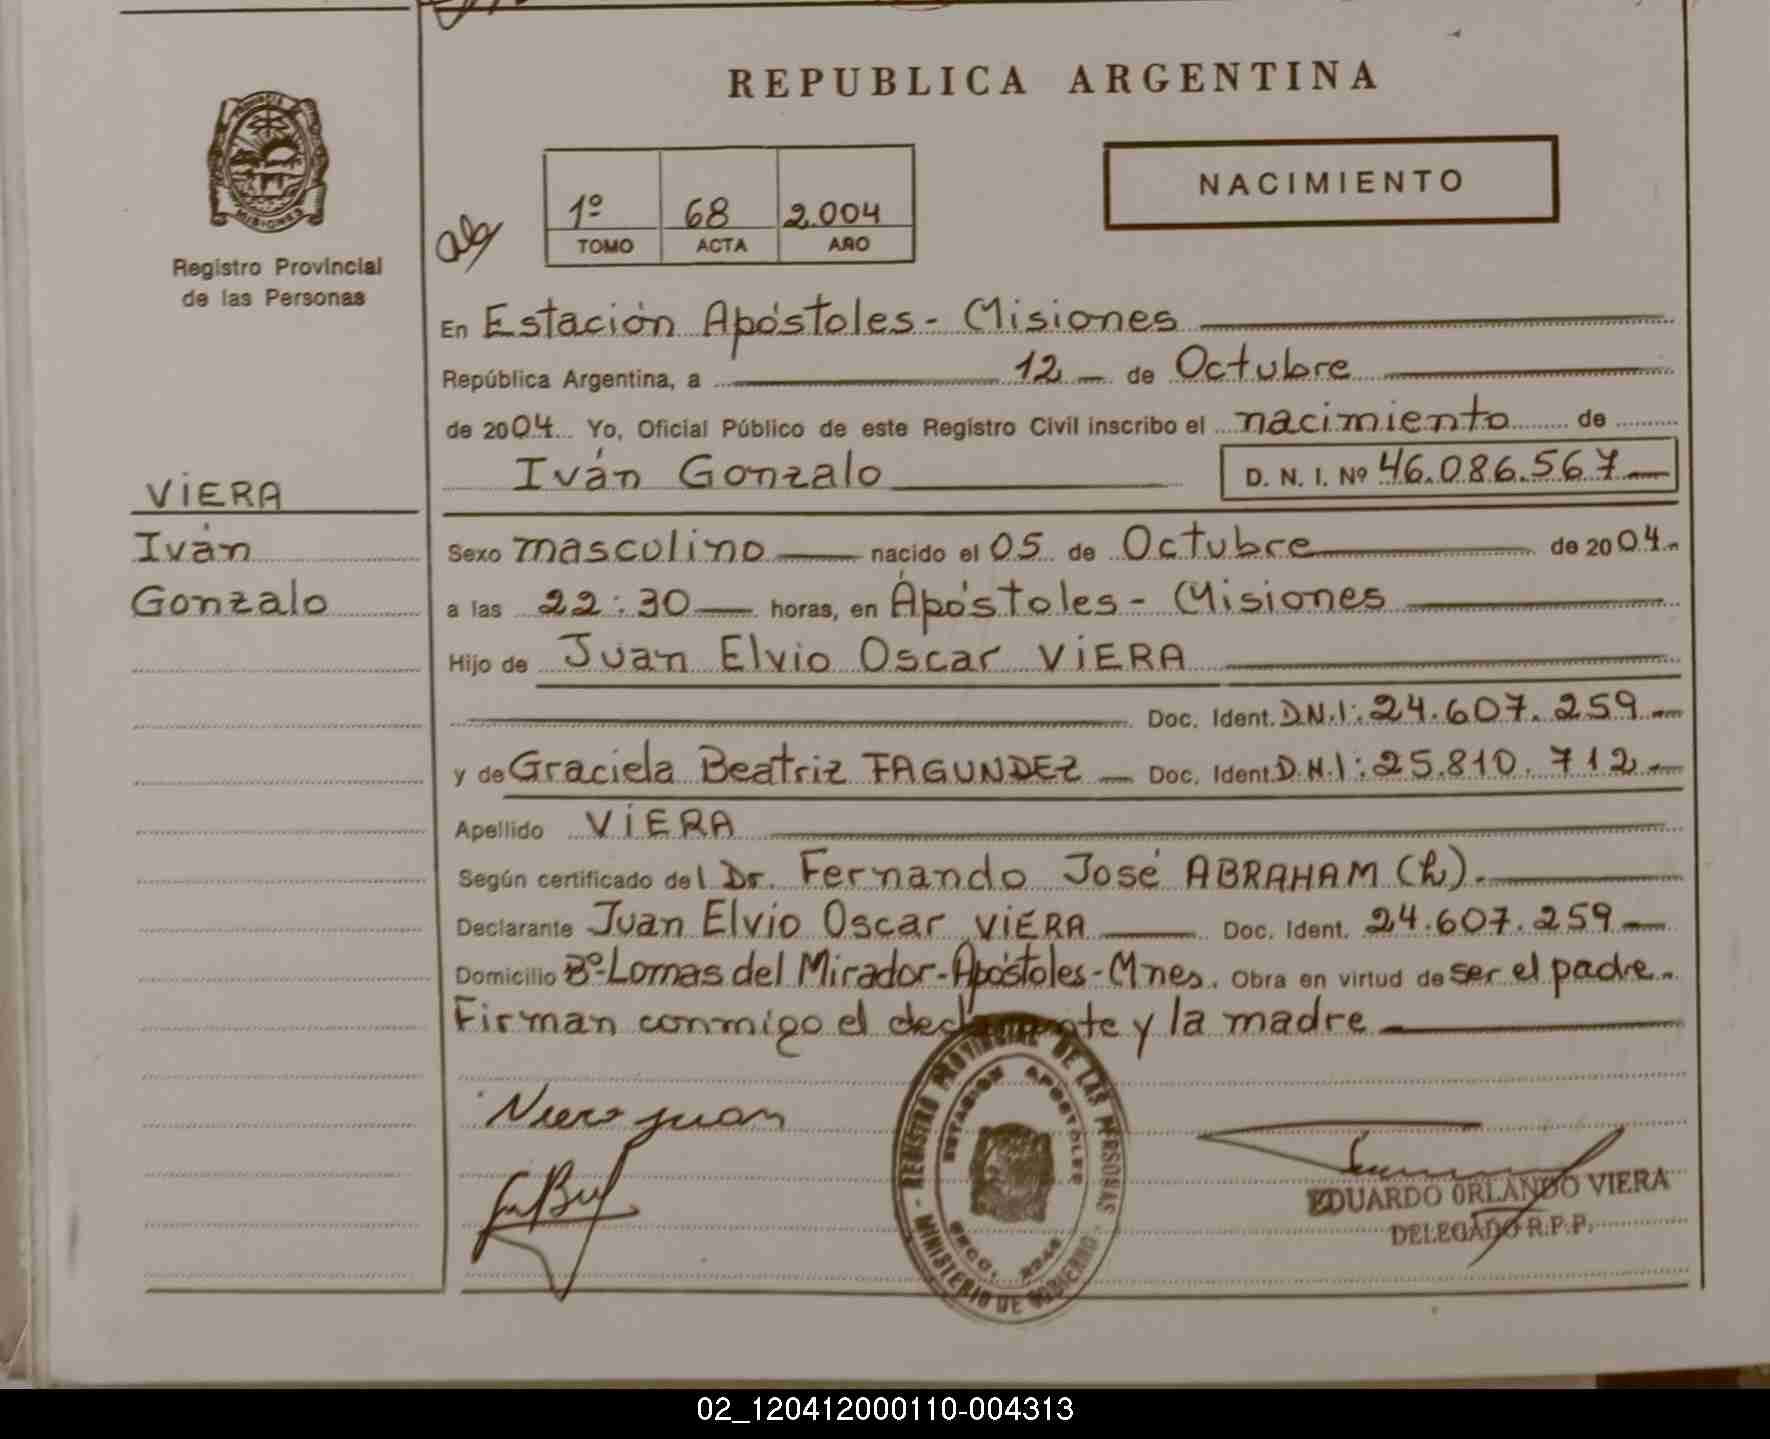 REPUBLICA ARGENTINA
NACIMIENTO
1º 68 2.004
TOMO ACTA AÑO
MISIONES
Registro Provincial
de las Personas
VIERA
Iván
Gonzalo
En Estación Apóstoles - Misiones
República Argentina, a 12 de Octubre
de 2004 Yo, Oficial Público de este Registro Civil inscribo el nacimiento de
Iván Gonzalo D. N. I. Nº 46.086.567
Sexo masculino nacido el 05 de Octubre de 2004
a las 22:30 horas, en Apóstoles - Misiones
Hijo de Juan Elvio Oscar VIERA
Doc. Ident. D.N.I: 24.607.259
y de Graciela Beatriz FAGUNDEZ Doc. Ident. D.N.I: 25.810.712
Apellido VIERA
Según certificado del Dr. Fernando José ABRAHAM (h).
Declarante Juan Elvio Oscar VIERA Doc. Ident. 24.607.259
Domicilio Bº Lomas del Mirador - Apóstoles - Mnes. Obra en virtud de ser el padre.
Firman conmigo el declarante y la madre
Viera Juan
REGISTRO PROVINCIAL DE LAS PERSONAS
ESTACION APOSTOLES
MINISTERIO DE GOBIERNO
EDUARDO ORLANDO VIERA
DELEGADO R.P.P.
02_120412000110-004313